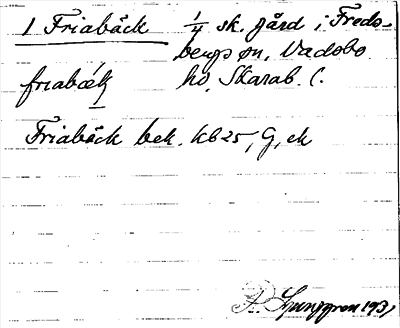 1 Friabäck 1/4 sk. gård i Freds-
bergs sn, Vadsbo
friabǽk hd, Skarab. l.
Friabäck bek. Kb 25, G, ek
Ljunggren 1931